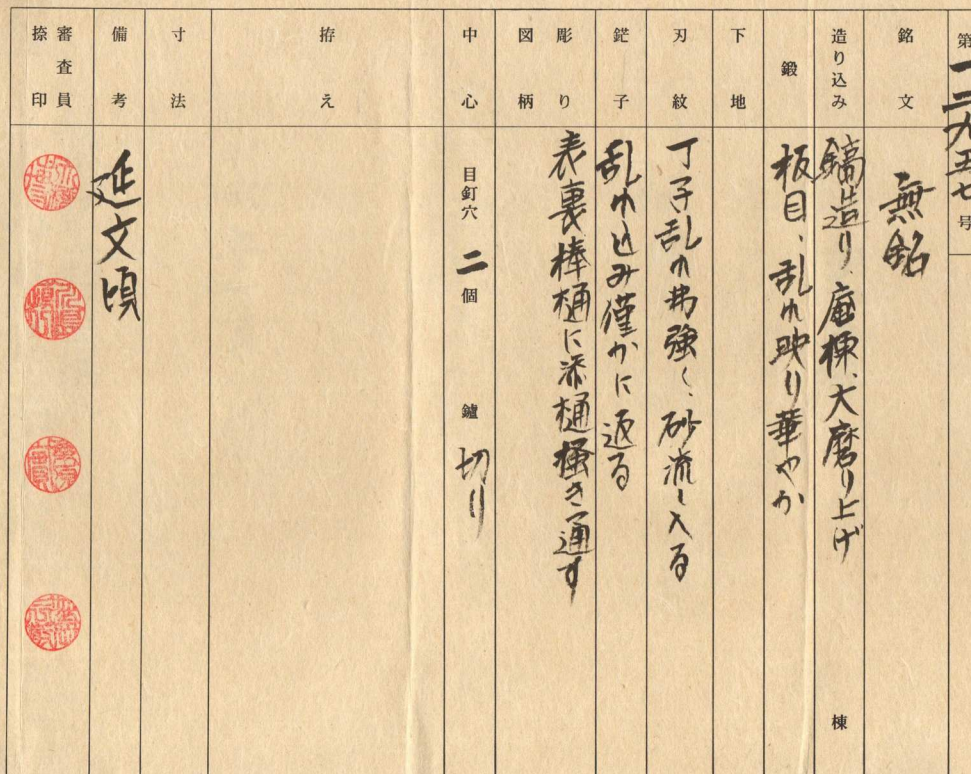 第一二九五七号
銘文 無銘
造り込み 鎬造り、庵棟、大磨り上げ 棟
鍛 板目、乱れ映り華やか
下地
刃紋 丁子乱れ沸強く、砂流し入る
鋩子 乱れ込み僅かに返る
彫り 表裏棒樋に添樋掻き通す
図柄
中心 目釘穴 二個 鑢 切り
拵え
寸法
備考 延文頃
審査員
捺印